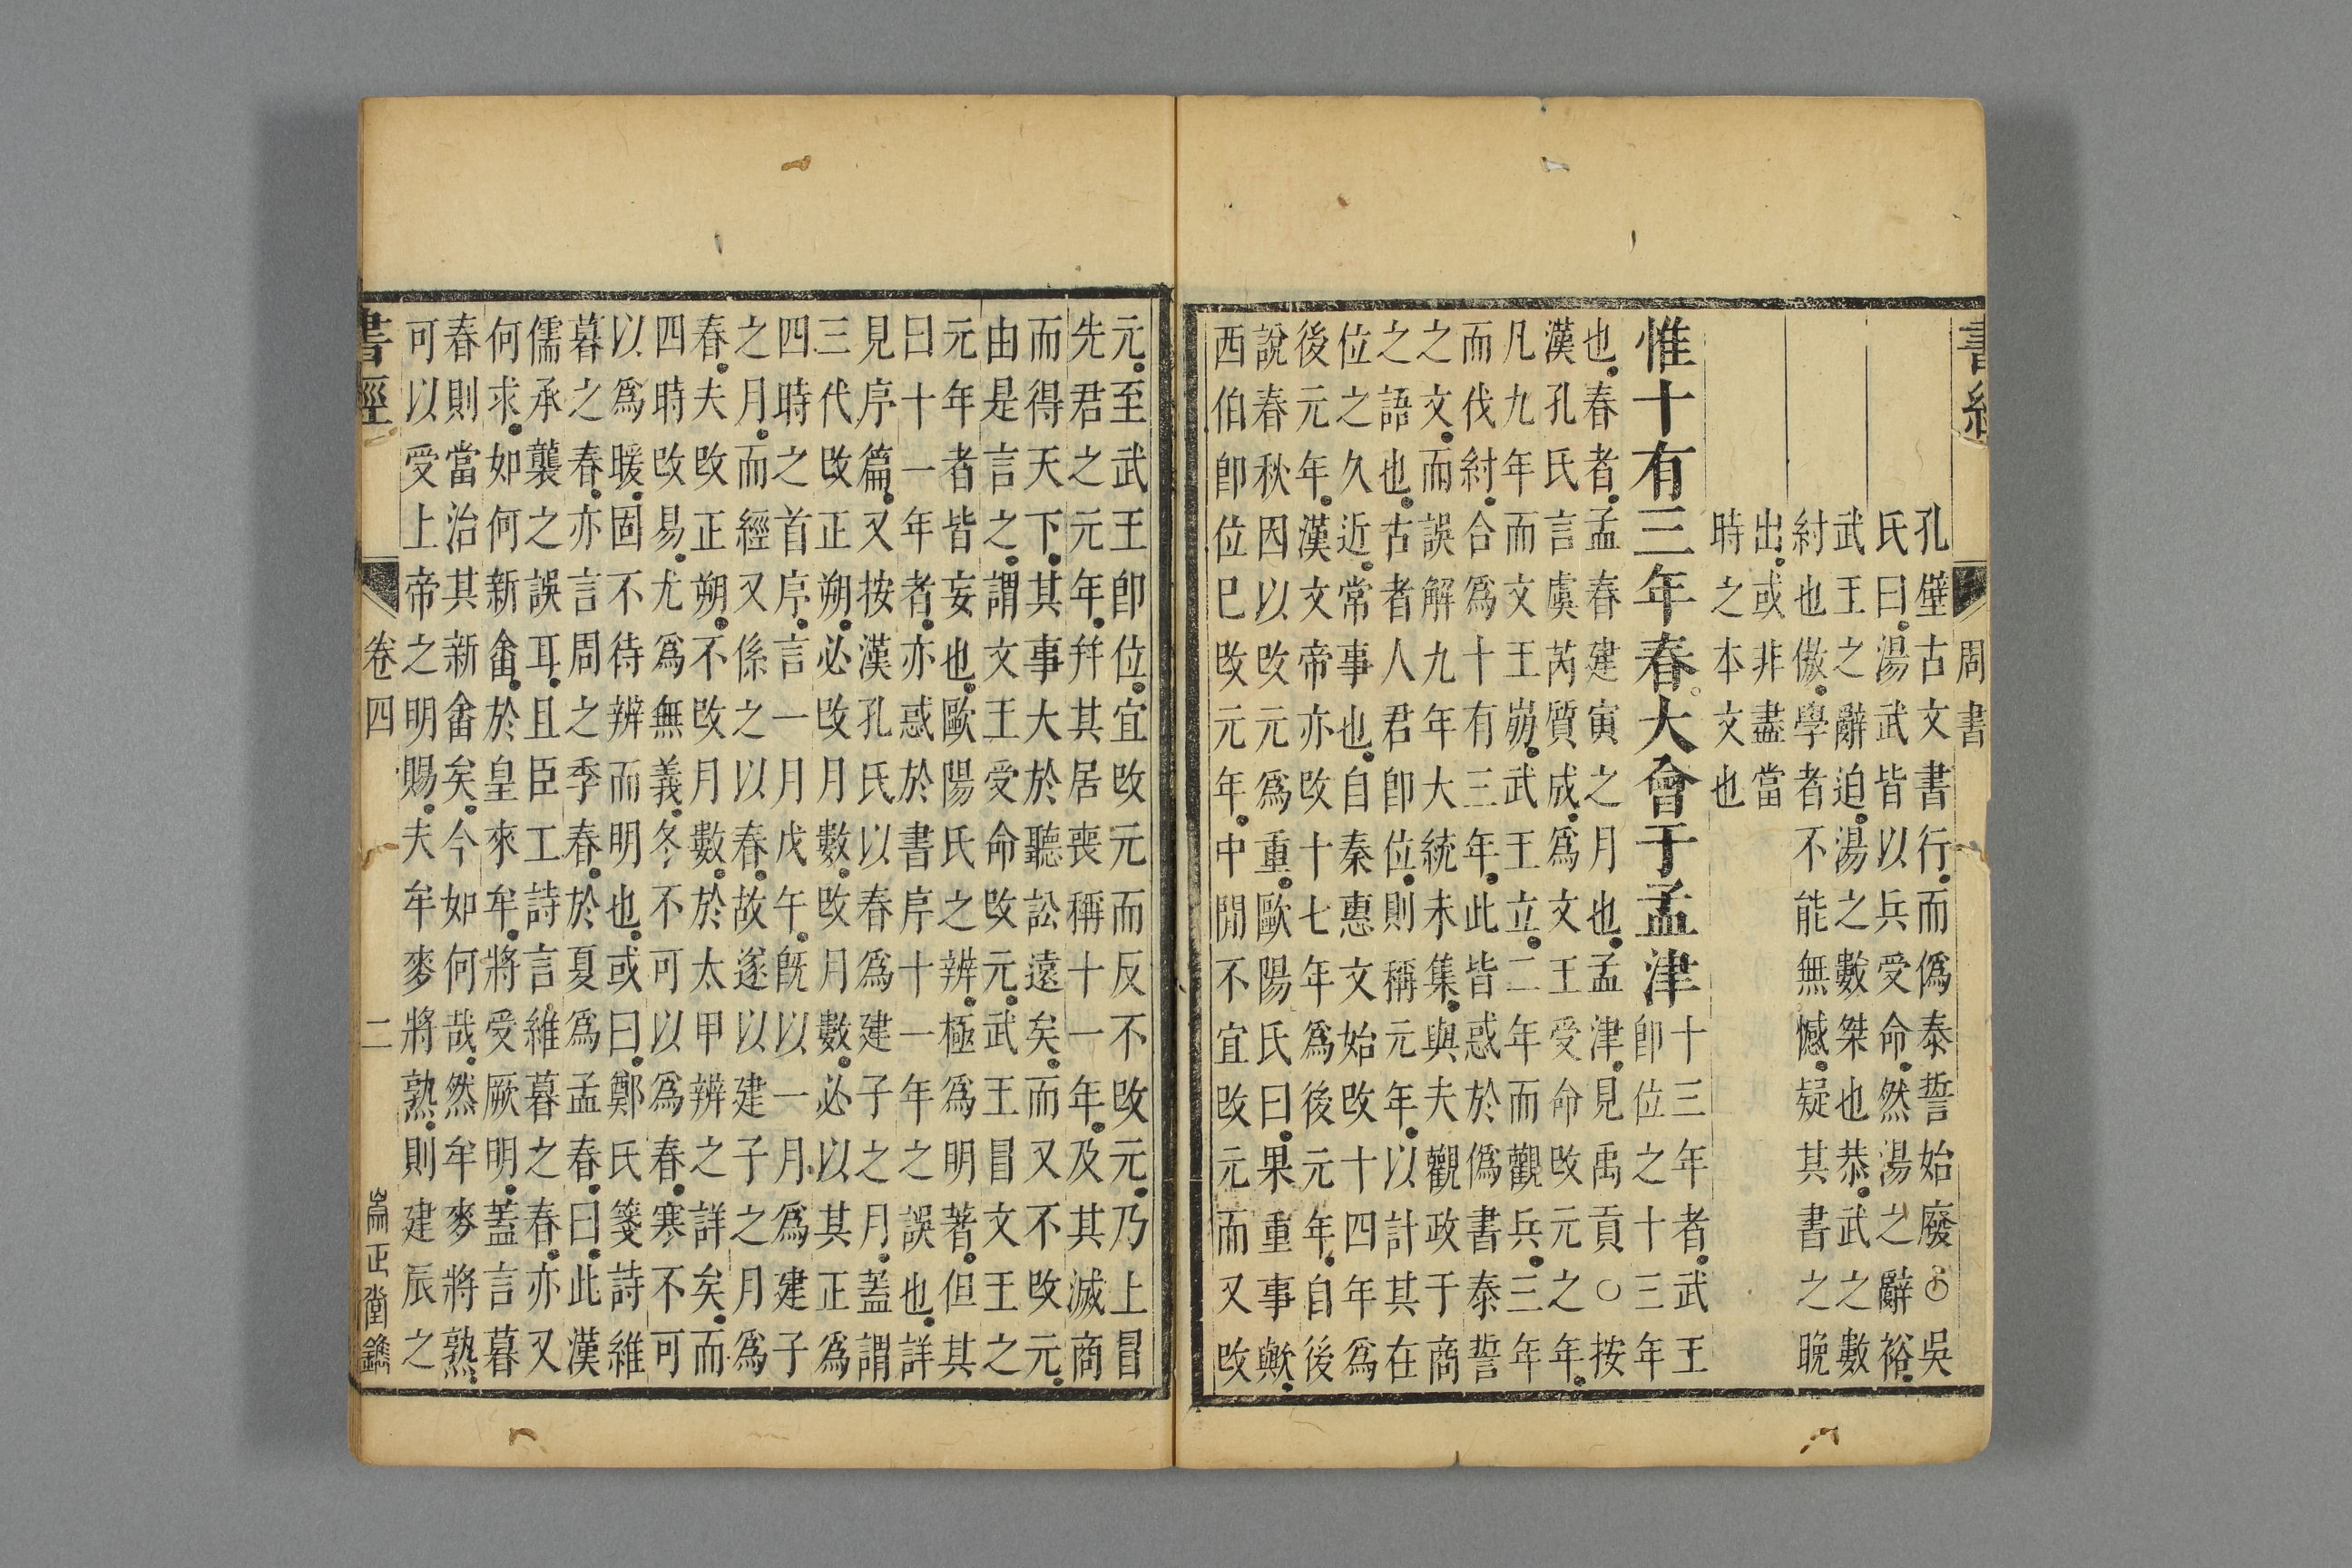 書經 周書
孔壁古文書行而僞泰誓始廢○吳
氏曰湯武皆以兵受命然湯之辭裕
武王之辭迫湯之數桀也恭武之數
紂也傲學者不能無憾疑其書之晚
出或非盡當
時之本文也
惟十有三年春大會于孟津
十三年者武王
卽位之十三年
也春者孟春建寅之月也孟津見禹貢○按
漢孔氏言虞芮質成爲文王受命攺元之年
凡九年而文王崩武王立二年而觀兵三年
而伐紂合爲十有三年此皆惑於僞書泰誓
之文而誤解九年大統未集與夫觀政于商
之語也古者人君卽位則稱元年以計其在
位之久近常事也自秦惠文始攺十四年爲
後元年漢文帝亦攺十七年爲後元年自後
說春秋因以攺元爲重歐陽氏曰果重事歟
西伯卽位巳攺元年中閒不宜攺元而又攺
元至武王卽位宜攺元而反不攺元乃上冒
先君之元年幷其居喪稱十一年及其滅商
而得天下其事大於聽訟遠矣而又不攺元
由是言之謂文王受命攺元武王冒文王之
元年者皆妄也歐陽氏之辨極爲明著但其
曰十一年者亦惑於書序十一年之誤也詳
見序篇又按漢孔氏以春爲建子之月蓋謂
三代攺正朔必攺月數攺月數必以其正爲
四時之首序言一月戊午旣以一月爲建子
之月而經又係之以春故遂以建子之月爲
春夫攺正朔不攺月數於太甲辨之詳矣而
四時攺易尤爲無義冬不可以爲春寒不可
以爲暖固不待辨而明也或曰鄭氏箋詩維
暮之春亦言周之季春於夏爲孟春曰此漢
儒承襲之誤耳且臣工詩言維暮之春亦又
何求如何新畬於皇來牟將受厥明蓋言暮
春則當治其新畬矣今如何哉然牟麥將熟
可以受上帝之明賜夫牟麥將熟則建辰之
書經 卷四 二 崙正堂鐫